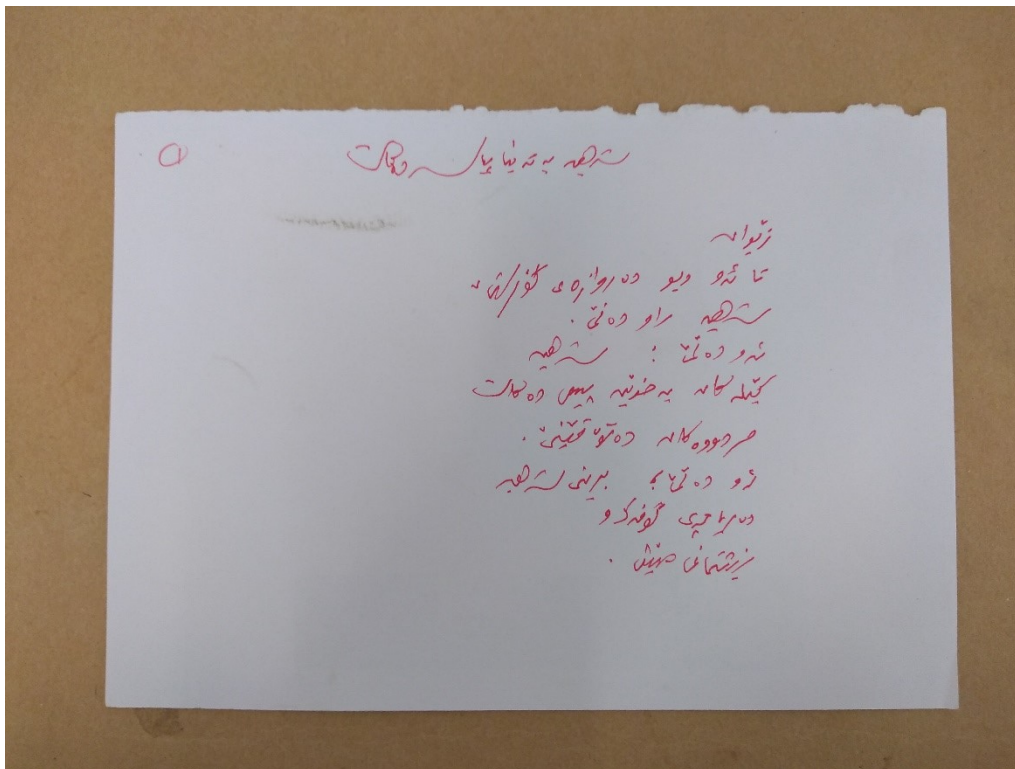 شەهید بە تەنیا پیاسە دەکات
ژێوان
تا ئەو دیو دەروازەی گۆڕستان
شەهید راو دەنێ.
ئەو دەڵێ: شەهید
کێلەکان بە خوێن پیس دەکات
مردووەکان دەتۆقێنێ.
ئەو دەڵێ: برینی شەهید
دەریاچەی
نیشتمانی